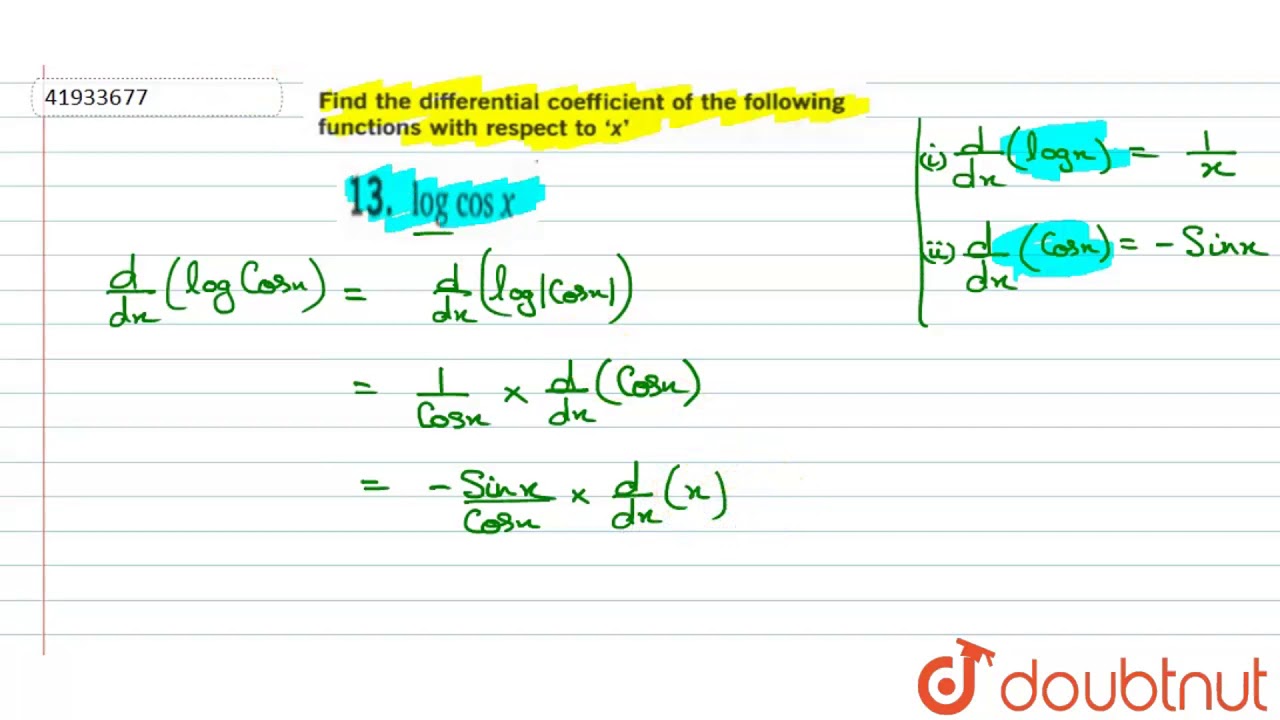 41933677
Find the differential coefficient of the following
functions with respect to ‘x’
13. log cos x
d/dx (log Cosx) = d/dx (log|Cosx|)
= 1/Cosx × d/dx (Cosx)
= - Sinx/Cosx × d/dx (x)
(i) d/dx (logx) = 1/x
(ii) d/dx (Cosx) = - Sinx
doubtnut